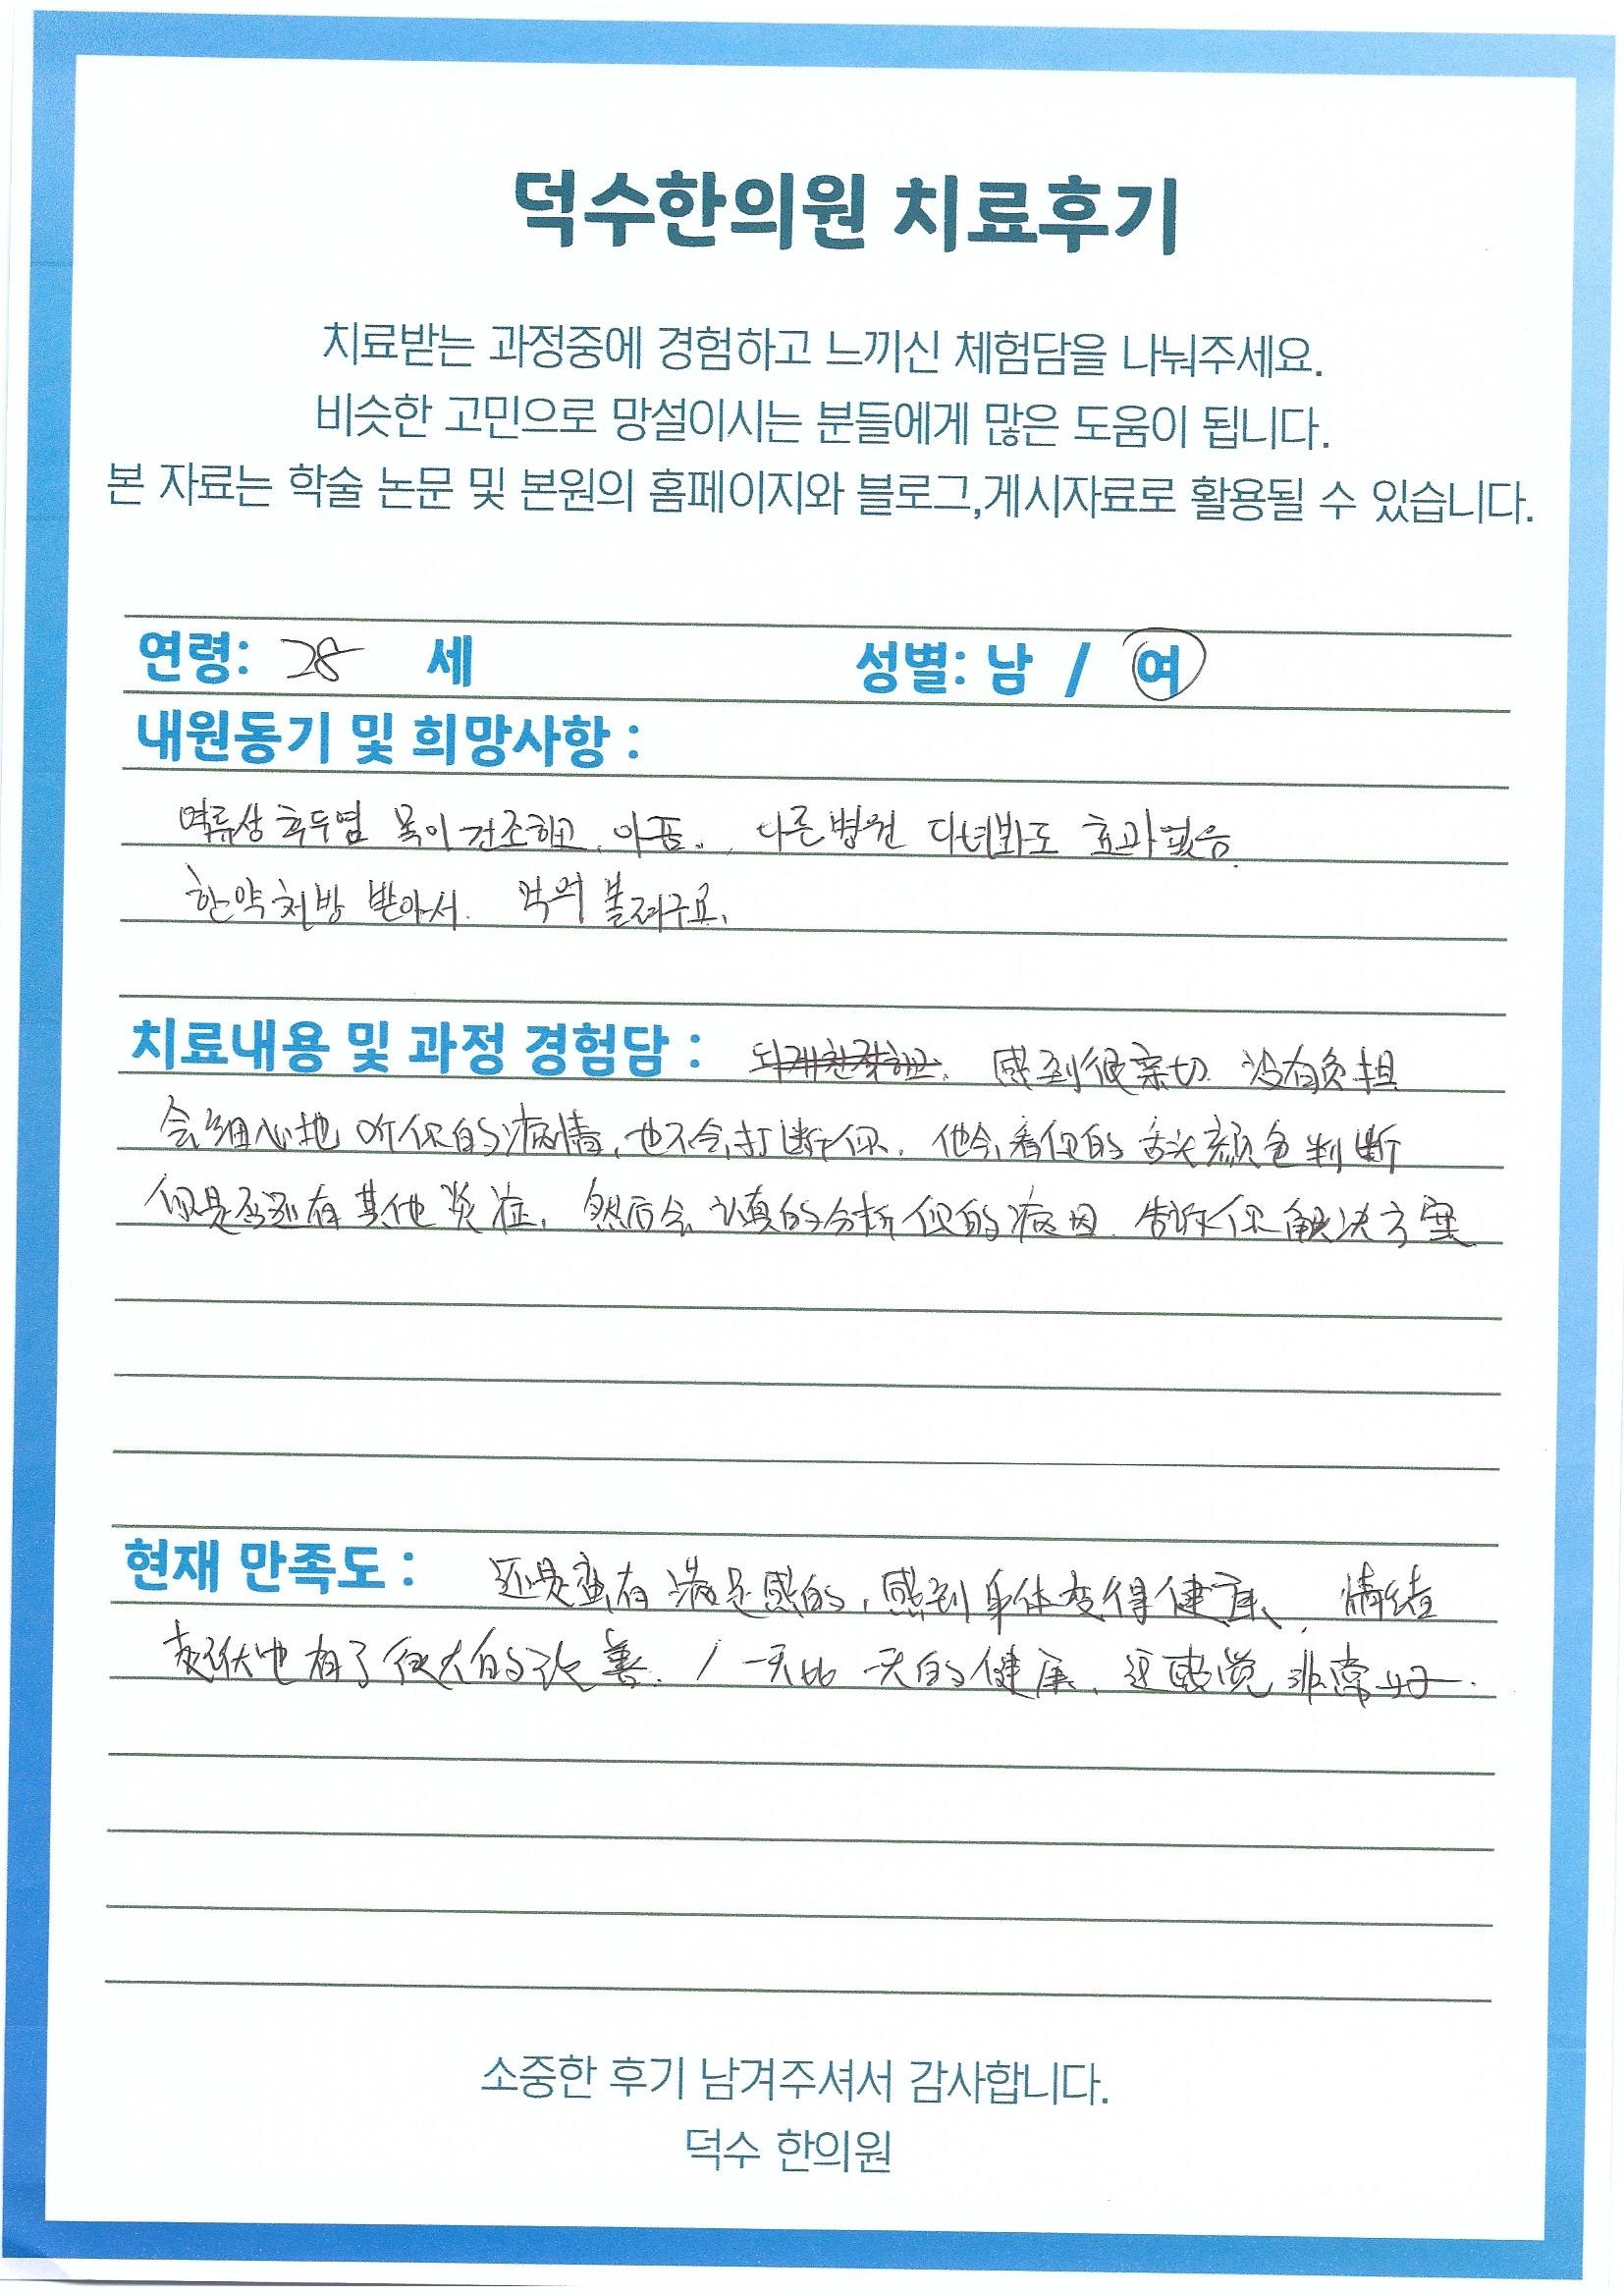 덕수한의원 치료후기
치료받는 과정중에 경험하고 느끼신 체험담을 나눠주세요.
비슷한 고민으로 망설이시는 분들에게 많은 도움이 됩니다.
본 자료는 학술 논문 및 본원의 홈페이지와 블로그,게시자료로 활용될 수 있습니다.
연령: 28 세 성별: 남 / 여
내원동기 및 희망사항 :
역류성 후두염 목이 건조하고, 아픔., 다른병원 다녀봐도 효과없음.
한약처방 받아서. 먹어 볼려구요.
치료내용 및 과정 경험담 : 되게친절하고. 感到很亲切. 没有负担
会细心地 听你的病情, 也不会打断你. 他会看你的 舌头颜色判断
你是否还有其他炎症, 然后会 认真的分析你的病因. 告诉你解决方案
현재 만족도 : 还是蛮有满足感的, 感到身体变得健康, 情绪
起伏也有了很大的改善. / 一天比一天的健康, 还感觉非常好.
소중한 후기 남겨주셔서 감사합니다.
덕수 한의원